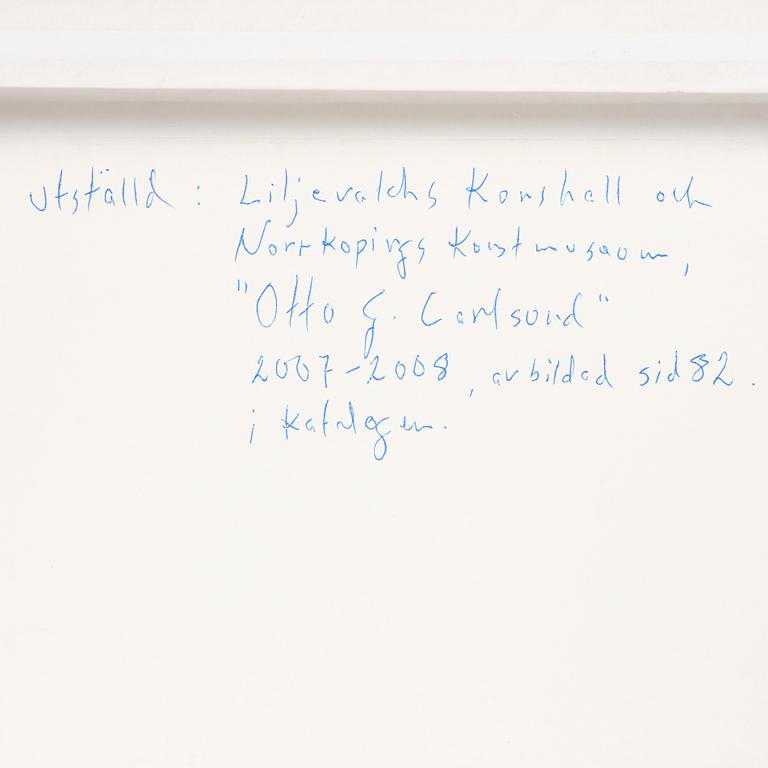 utställd : Liljevalchs Konshall och
Norrkopings Konstmuseum,
"Otto G. Carlsund"
2007-2008, avbildad sid 82.
i katalogen.